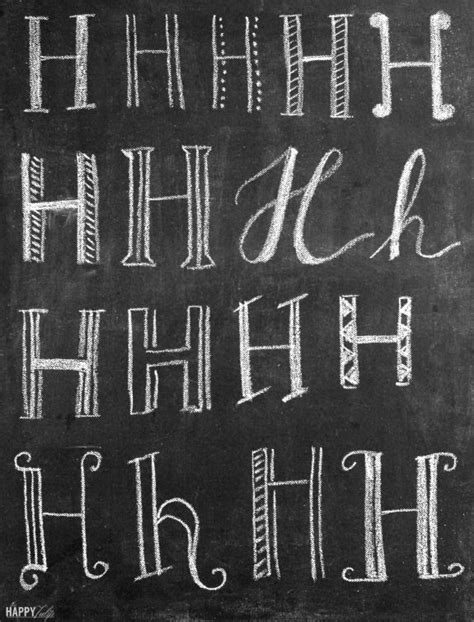 H H H H H
H H H h
H H H H
H h H H
HAPPY Tulip